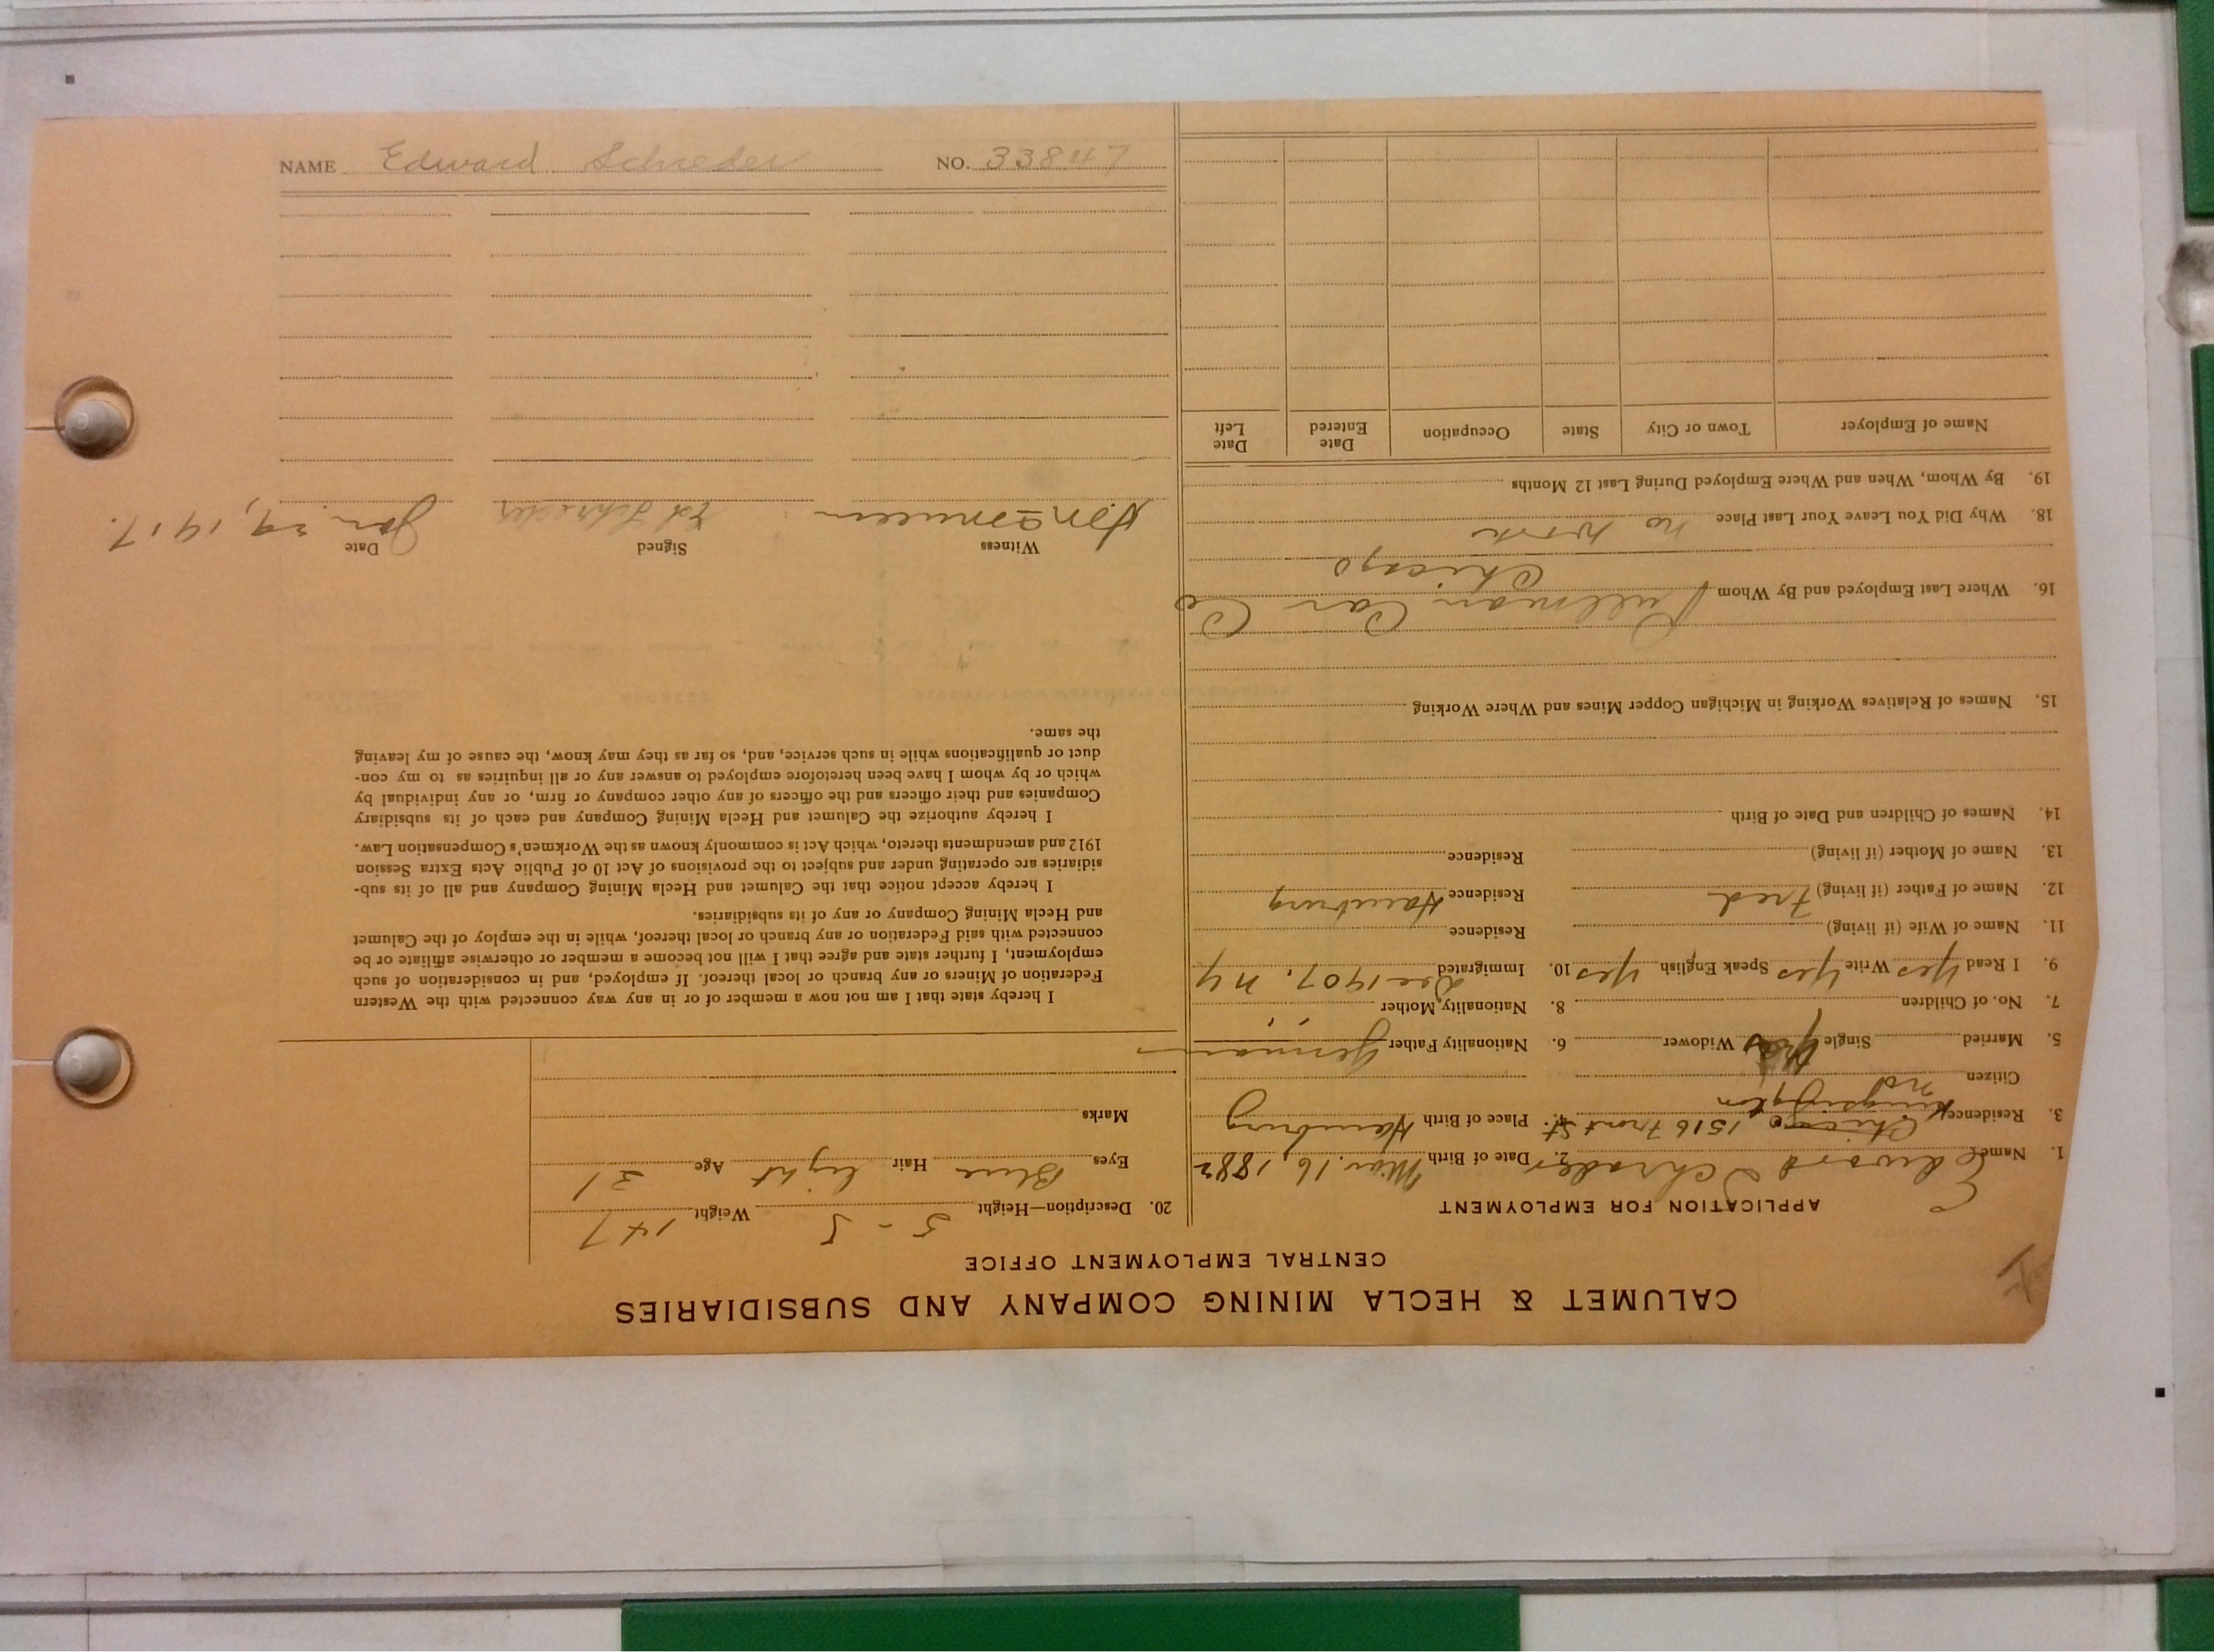 CALUMET & HECLA MINING COMPANY AND SUBSIDIARIES
CENTRAL EMPLOYMENT OFFICE
APPLICATION FOR EMPLOYMENT
1. Name Edward Schrader 2. Date of Birth Mar. 16, 1882
3. Residence Chicago 1516 Front St. 4. Place of Birth Hamburg
Kensington
Citizen no
5. Married Single yes Widower 6. Nationality Father German
7. No. of Children 8. Nationality Mother " "
9. I Read yes Write yes Speak English yes 10. Immigrated Dec 1907. N Y
11. Name of Wife (if living) Residence
12. Name of Father (if living) Fred Residence Hamburg
13. Name of Mother (if living) Residence
14. Names of Children and Date of Birth
15. Names of Relatives Working in Michigan Copper Mines and Where Working
Pullman Car Co
16. Where Last Employed and By Whom
Chicago
18. Why Did You Leave Your Last Place no work
19. By Whom, When and Where Employed During Last 12 Months
Name of Employer Town or City State Occupation Date Entered Date Left
20. Description—Height 5 - 5 Weight 147
Eyes Blue Hair light Age 31
Marks
I hereby state that I am not now a member of or in any way connected with the Western
Federation of Miners or any branch or local thereof. If employed, and in consideration of such
employment, I further state and agree that I will not become a member or otherwise affiliate or be
connected with said Federation or any branch or local thereof, while in the employ of the Calumet
and Hecla Mining Company or any of its subsidiaries.
I hereby accept notice that the Calumet and Hecla Mining Company and all of its sub-
sidiaries are operating under and subject to the provisions of Act 10 of Public Acts Extra Session
1912 and amendments thereto, which Act is commonly known as the Workmen's Compensation Law.
I hereby authorize the Calumet and Hecla Mining Company and each of its subsidiary
Companies and their officers and the officers of any other company or firm, or any individual by
which or by whom I have been heretofore employed to answer any or all inquiries as to my con-
duct or qualifications while in such service, and, so far as they may know, the cause of my leaving
the same.
Witness Signed Date
Ed Schreder Jan. 29, 1917.
NAME Edward Schreder NO. 33847